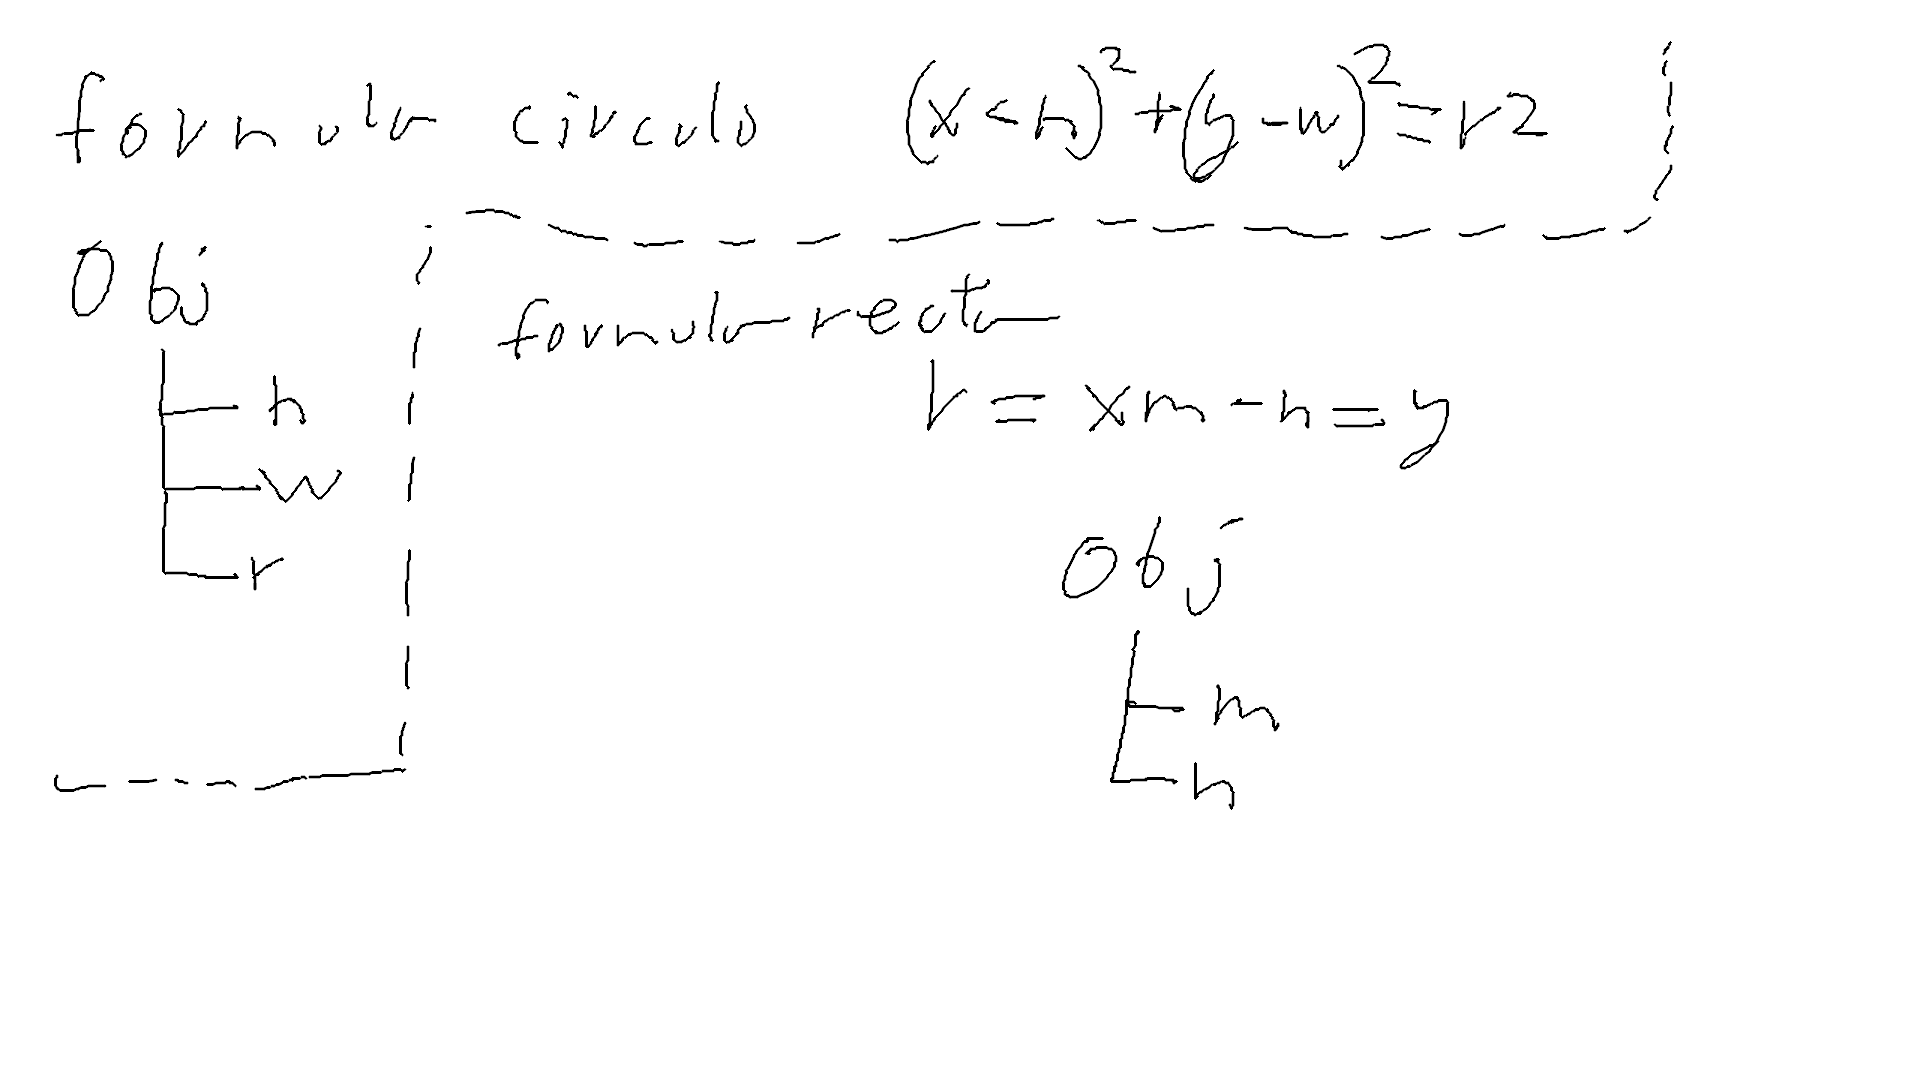 formula circulo (x-h)²+(y-w)²=r2
Obj
h
w
r
formula recta
r = xm - n = y
Obj
m
n